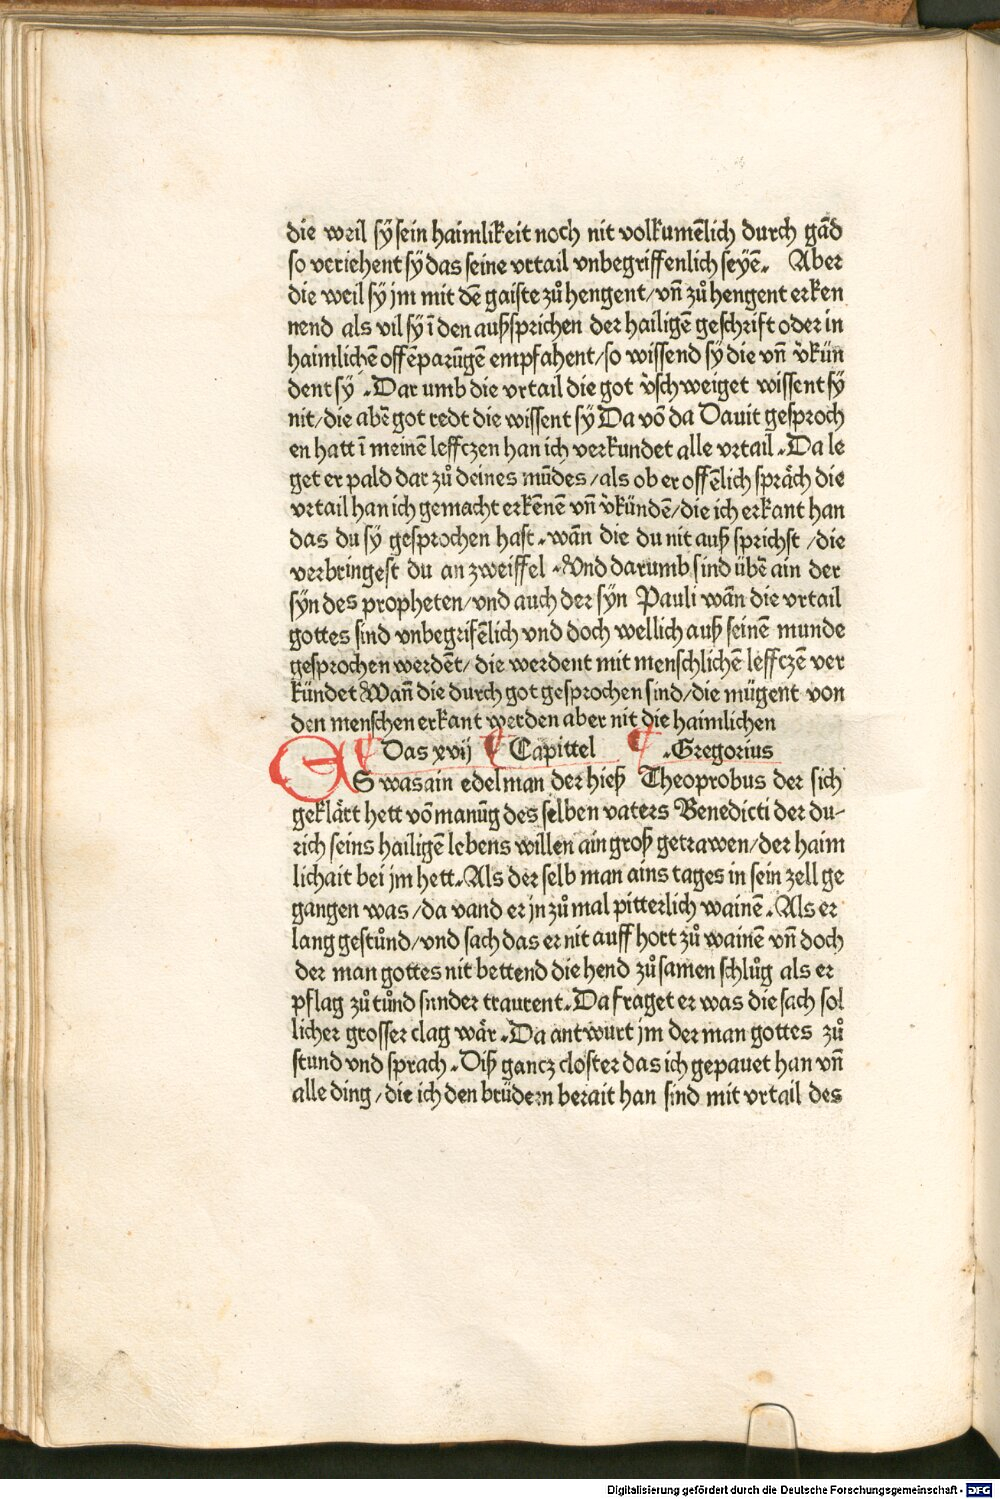 die weil sÿ sein haimlikeit noch nit volkumēlich durch gād
so veriehent sÿ das seine vrtail vnbegriffenlich seÿē. Aber
die weil sÿ jm mit dē gaiste zů hengent/vn̄ zů hengent erken
nend als vil sÿ ī den außsprichen der hailigē geschrift oder in
haimlichē offēparūgē empfahent/so wissend sÿ die vn̄ v̉kün
dent sÿ .Dar umb die vrtail die got v̉schweiget wissent sÿ
nit/die abē got redt die wissent sÿ Da vō da Dauit gesproch
en hatt ī meinē leffczen han ich verkundet alle vrtail .Da le
get er pald dar zů deines mūdes/als ob er offēlich spräch die
vrtail han ich gemacht erkēnē vn̄ v̉kündē/die ich erkant han
das du sÿ gesprochen hast .wān die du nit auß sprichst /die
verbringest du an zweiffel .Vnd darumb sind übē ain der
sÿn des propheten/vnd auch der sÿn Pauli wān die vrtail
gottes sind vnbegrifēlich vnd doch wellich auß seinē munde
gesprochen werdēt/ die werdent mit menschlichē leffczē ver
kündet Wan̄ die durch got gesprochen sind/die mügent von
den menschen erkant werden aber nit die haimlichen
Das xvij Capittel .Gregorius
ES was ain edelman der hieß Theoprobus der sich
geklärt hett vō manūg des selben vaters Benedicti der du-
rich seins hailigē lebens willen ain groß getrawen/der haim
lichait bei jm hett .Als der selb man ains tages in sein zell ge
gangen was /da vand er jn zů mal pitterlich wainē .Als er
lang gestůnd/vnd sach das er nit auff hort zů wainē vn̄ doch
der man gottes nit bettend die hend zůsamen schlůg als er
pflag zů tůnd sunder traurent .Da fraget er was die sach sol
licher grosser clag wär .Da antwurt jm der man gottes zů
stund vnd sprach .Diß gancz closter das ich gepauet han vn̄
alle ding /die ich den brüdern berait han sind mit vrtail des
Digitalisierung gefördert durch die Deutsche Forschungsgemeinschaft - DFG